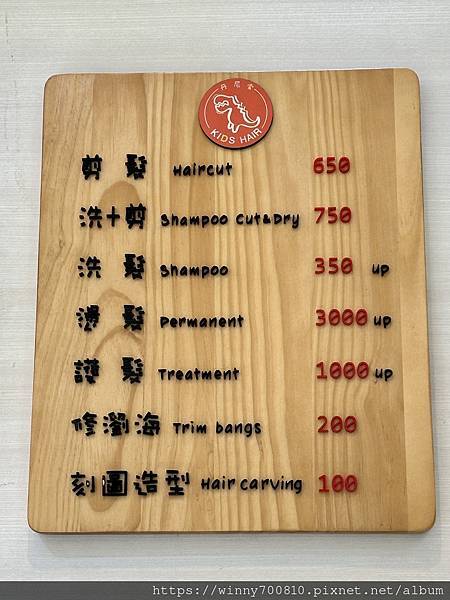 丹尼當
KIDS HAIR
剪髮 Haircut 650
洗+剪 Shampoo Cut&Dry 750
洗髮 Shampoo 350 up
燙髮 Permanent 3000 up
護髮 Treatment 1000 up
修瀏海 Trim bangs 200
刻圖造型 Hair carving 100
https://winny700810.pixnet.net/album